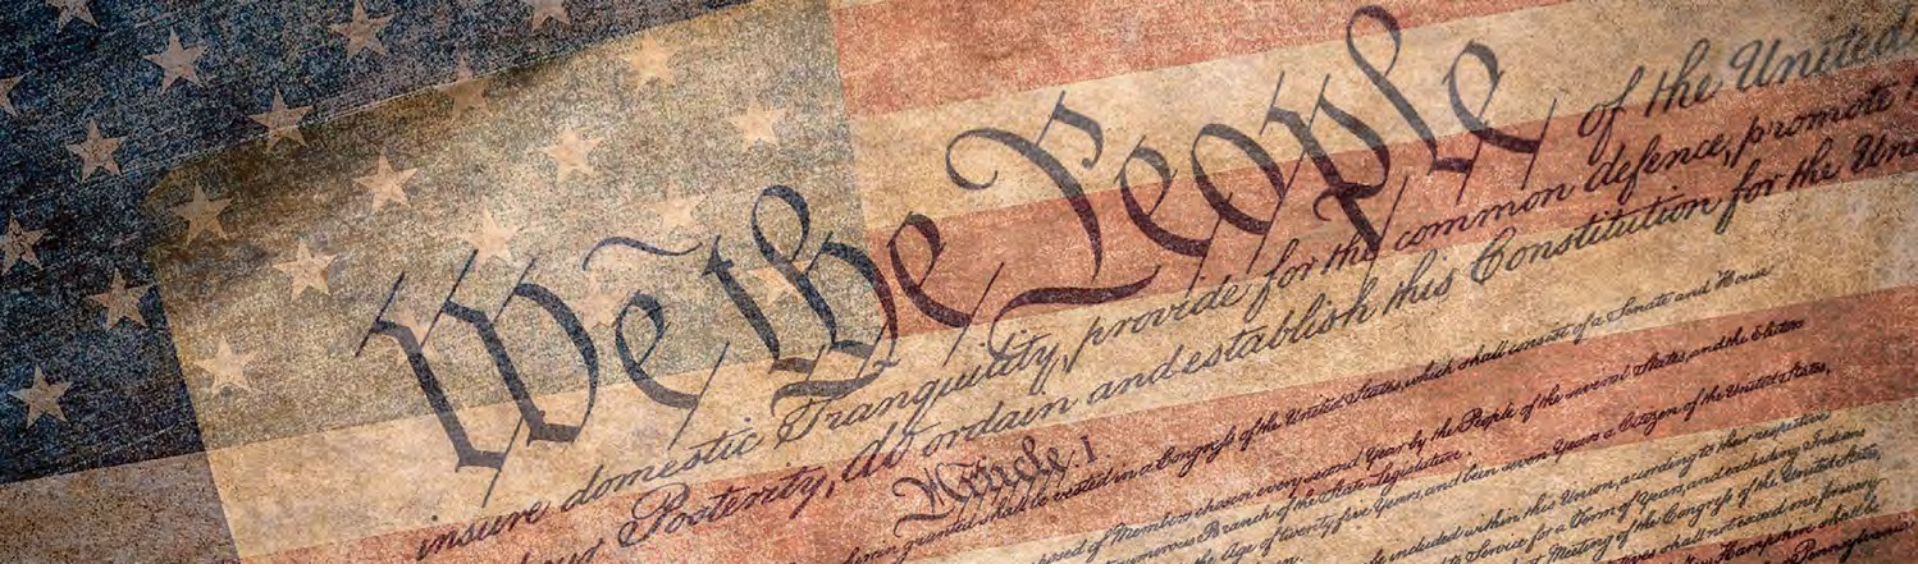 We the People of the United
insure domestic Tranquility, provide for the common defence, promote
our Posterity, do ordain and establish this Constitution for the Uni
Article. I.
herein granted shall be vested in a Congress of the United States, which shall consist of a Senate and House
posed of Members chosen every second Year by the People of the several States, and the Electors
numerous Branch of the State Legislature.
the Age of twenty five Years, and been seven Years a Citizen of the United States,
en.
be included within this Union, according to their respective
to Service for a Term of Years, and excluding Indians
Meeting of the Congress of the United States,
tives shall not exceed one for every
New Hampshire shall be
Pennsylvania